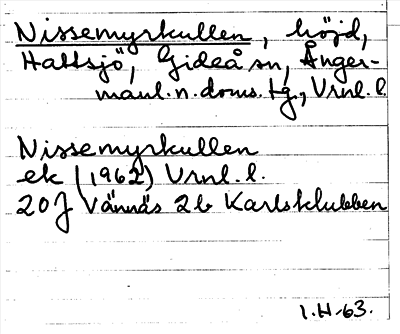 Nissemyrkullen, höjd,
Hattsjö, Gideå sn, Ånger-
manl. n. doms. tg., Vrnl. l.
Nissemyrkullen
ek (1962) Vrnl. l.
20J Vännäs 2b Karlsklubben
1. H-63.